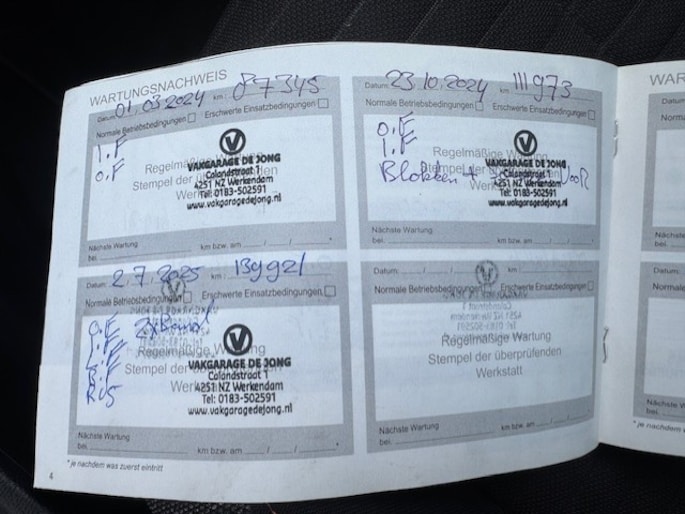 WARTUNGSNACHWEIS
Datum: 01.03.2024 km 87345
Normale Betriebsbedingungen Erschwerte Einsatzbedingungen
I.F
O.F
Regelmäßige Wartung
Stempel der überprüfenden
Werkstatt
VAKGARAGE DE JONG
Calandstraat 1
4251 NZ Werkendam
Tel: 0183-502591
www.vakgaragedejong.nl
Nächste Wartung
bei km bzw. am / / *
Datum: 23.10.2024 km 111973
Normale Betriebsbedingungen Erschwerte Einsatzbedingungen
O.F
I.F
Blokken +
Voor
Regelmäßige Wartung
Stempel der überprüfenden
VAKGARAGE DE JONG
Calandstraat 1
4251 NZ Werkendam
Tel: 0183-502591
www.vakgaragedejong.nl
Nächste Wartung
bei km bzw. am / / *
Datum: 2.7.2025 km 139921
Normale Betriebsbedingungen Erschwerte Einsatzbedingungen
O.F
I.F
RVS
Regelmäßige Wartung
Stempel der überprüfenden
VAKGARAGE DE JONG
Calandstraat 1
4251 NZ Werkendam
Tel: 0183-502591
www.vakgaragedejong.nl
Nächste Wartung
bei km bzw. am / / *
Datum: / / km
Normale Betriebsbedingungen Erschwerte Einsatzbedingungen
Regelmäßige Wartung
Stempel der überprüfenden
Werkstatt
Nächste Wartung
bei km bzw. am / / *
* je nachdem was zuerst eintritt
4
WAR
Datum:
Normale
Nächste
bei.
Datum:
Normale
Nächste W
bei.
* je nachdem